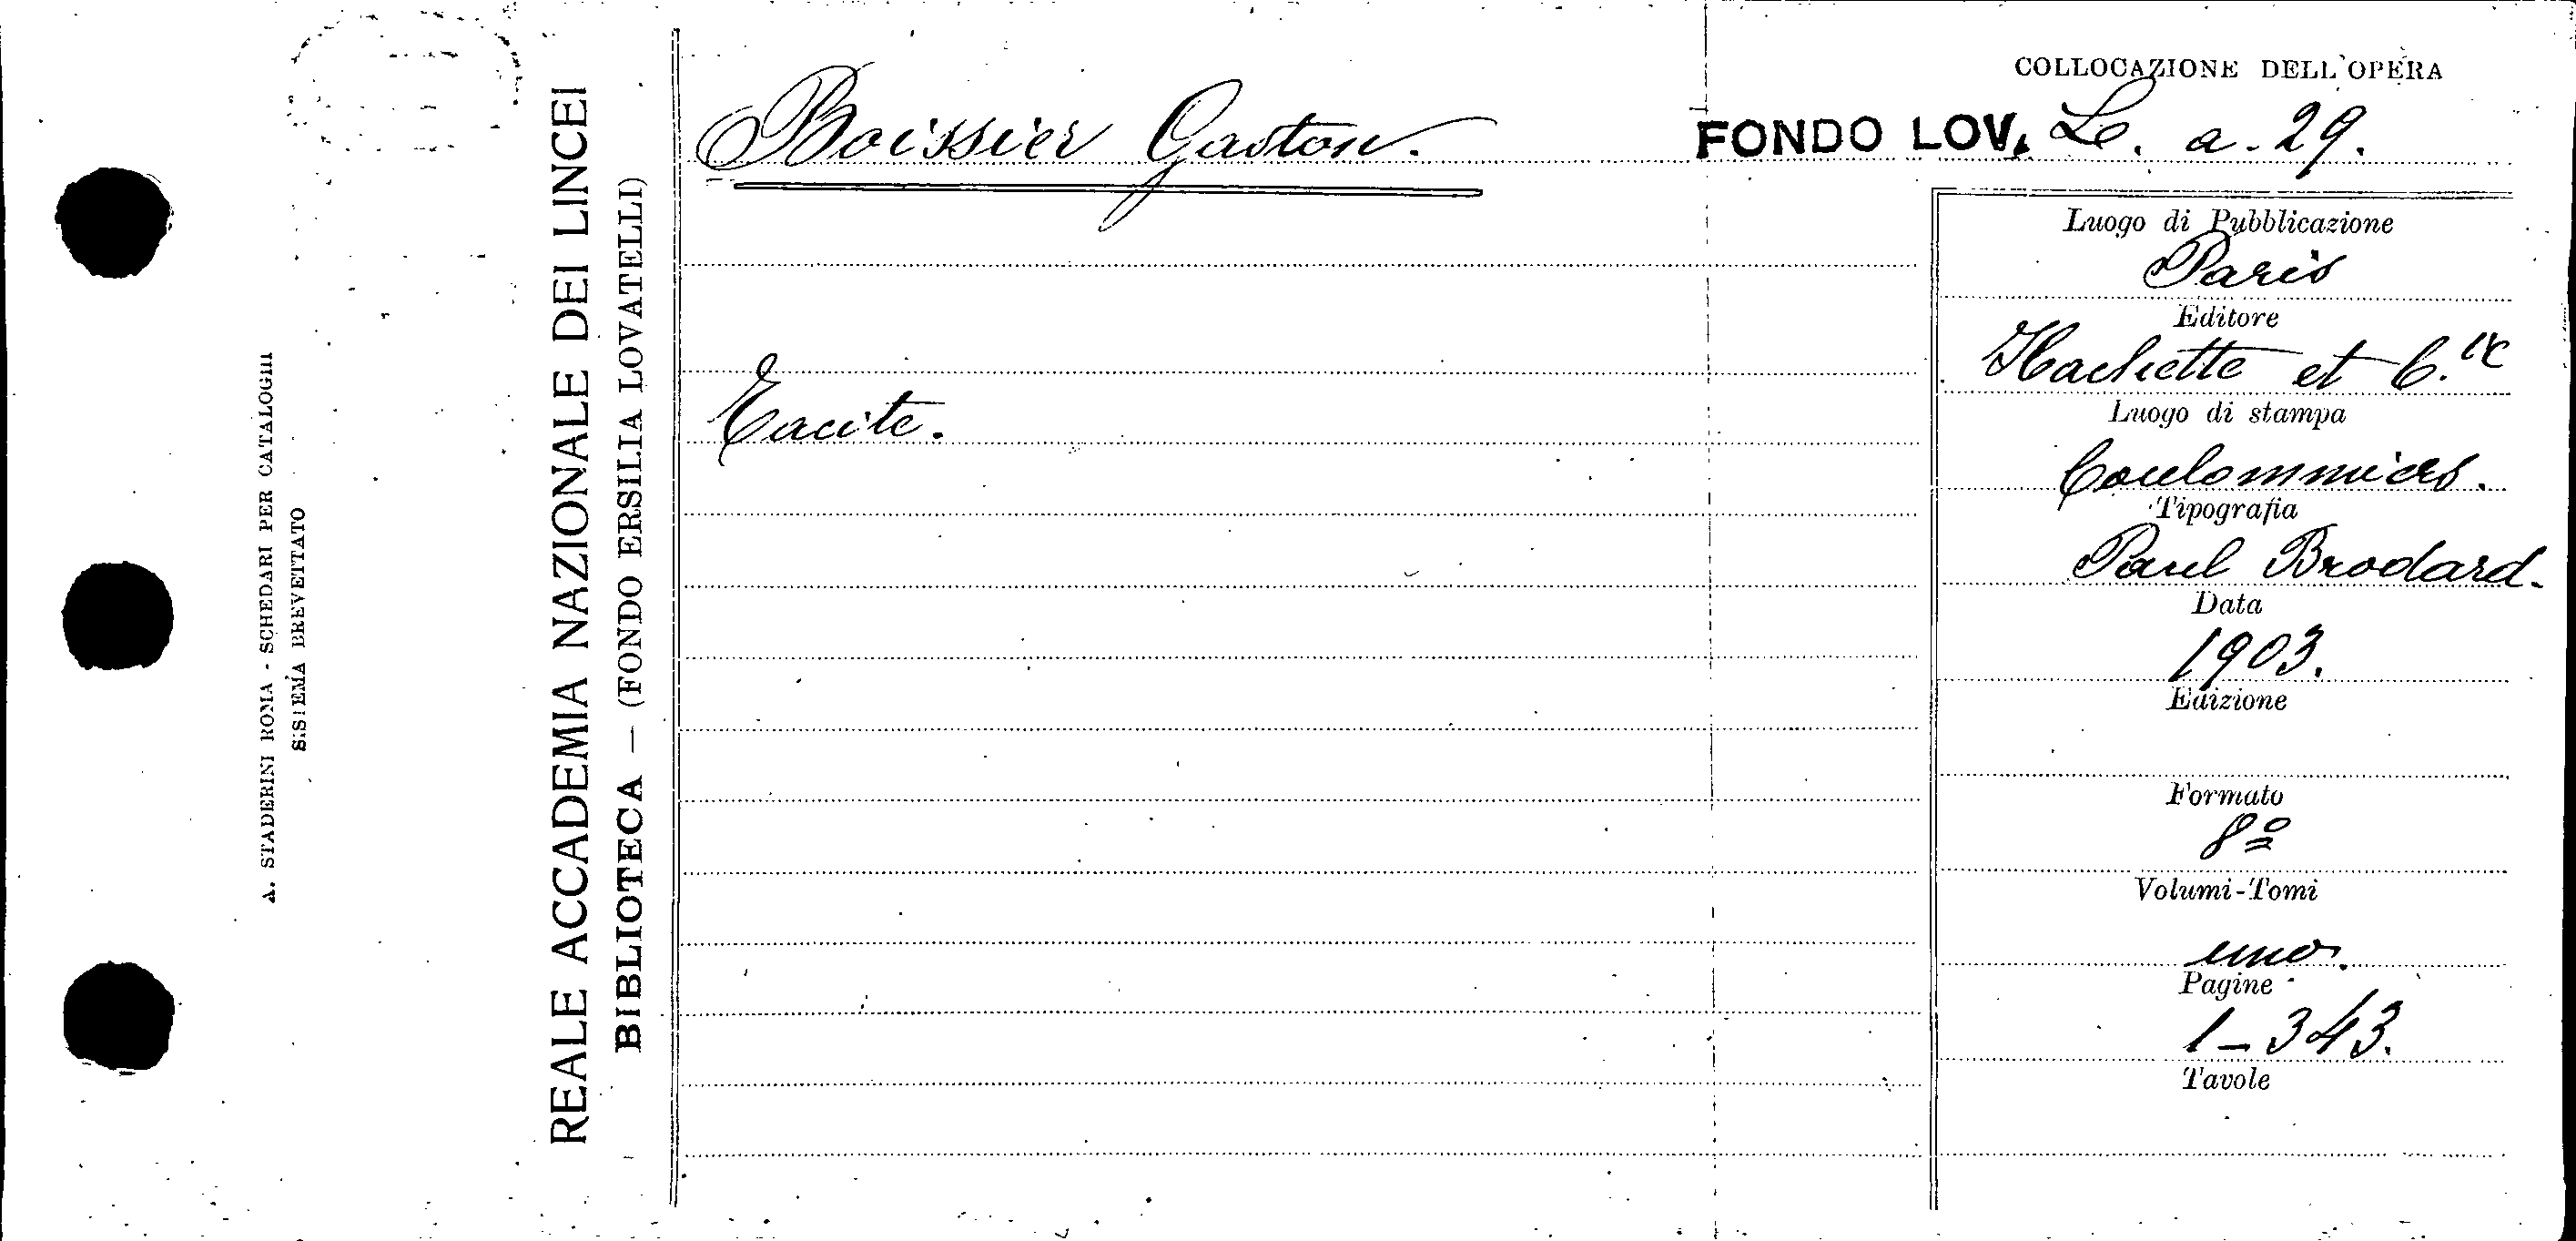 A. STADERINI ROMA - SCHEDARI PER CATALOGHI
SISTEMA BREVETTATO
REALE ACCADEMIA NAZIONALE DEI LINCEI
BIBLIOTECA — (FONDO ERSILIA LOVATELLI)
Boissier Gaston.
Tacite.
COLLOCAZIONE DELL'OPERA
FONDO LOV. L. a. 29.
Luogo di Pubblicazione
Paris
Editore
Hachette et C.ie
Luogo di stampa
Coulommiers.
Tipografia
Paul Brodard.
Data
1903.
Edizione
Formato
8º
Volumi-Tomi
uno.
Pagine
1-343.
Tavole